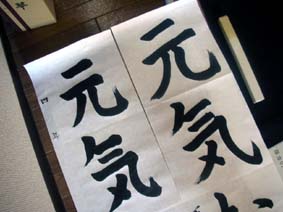 元気
元気